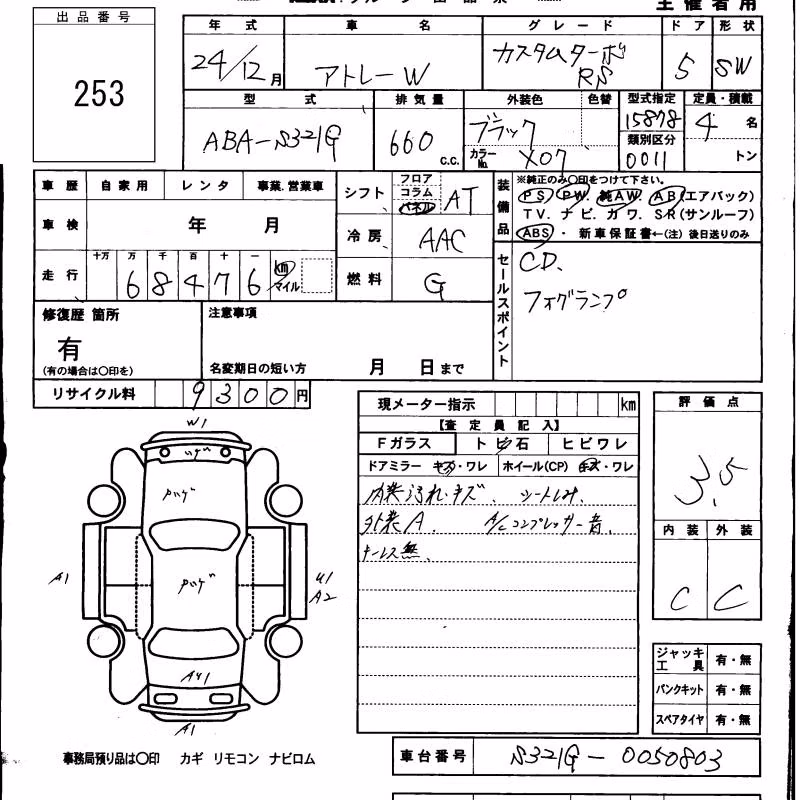 出品番号
253
年式 車名 グレード ドア 形状
24/12月 アトレーW カスタムターボRS 5 SW
型式 排気量 外装色 色替 型式指定 定員・積載
ABA-S321G 660 c.c. ブラック 15878 4名
カラーNo. X07 類別区分 0011 トン
車歴 自家用 レンタ 事業.営業車
車検 年 月
走行 十万 万 千 百 十 一
68476 km マイル
シフト フロア コラム パネル AT
冷房 AAC
燃料 G
装備品 ※純正のみ〇印をつけて下さい。
PS PW 純AW. AB(エアバック)
TV. ナビ. カワ. SR(サンルーフ)
ABS ・ 新車保証書←(注) 後日送りのみ
セールスポイント
CD.
フォグランプ
修復歴 箇所
有
(有の場合は〇印を)
注意事項
名変期日の短い方 月 日まで
リサイクル料 9300円
現メーター指示 km
【査定員記入】
Fガラス トビ石 ヒビワレ
ドアミラー キズ・ワレ ホイール(CP) キズ・ワレ
内装汚れ・キズ. シートしみ.
外装A. A/Cコンプレッサー音.
キーレス無.
評価点
3.5
内装 外装
C C
W1
A1
U1
A2
A1
ジャッキ工具 有・無
パンクキット 有・無
スペアタイヤ 有・無
事務局預り品は〇印 カギ リモコン ナビロム
車台番号 S321G-0050803